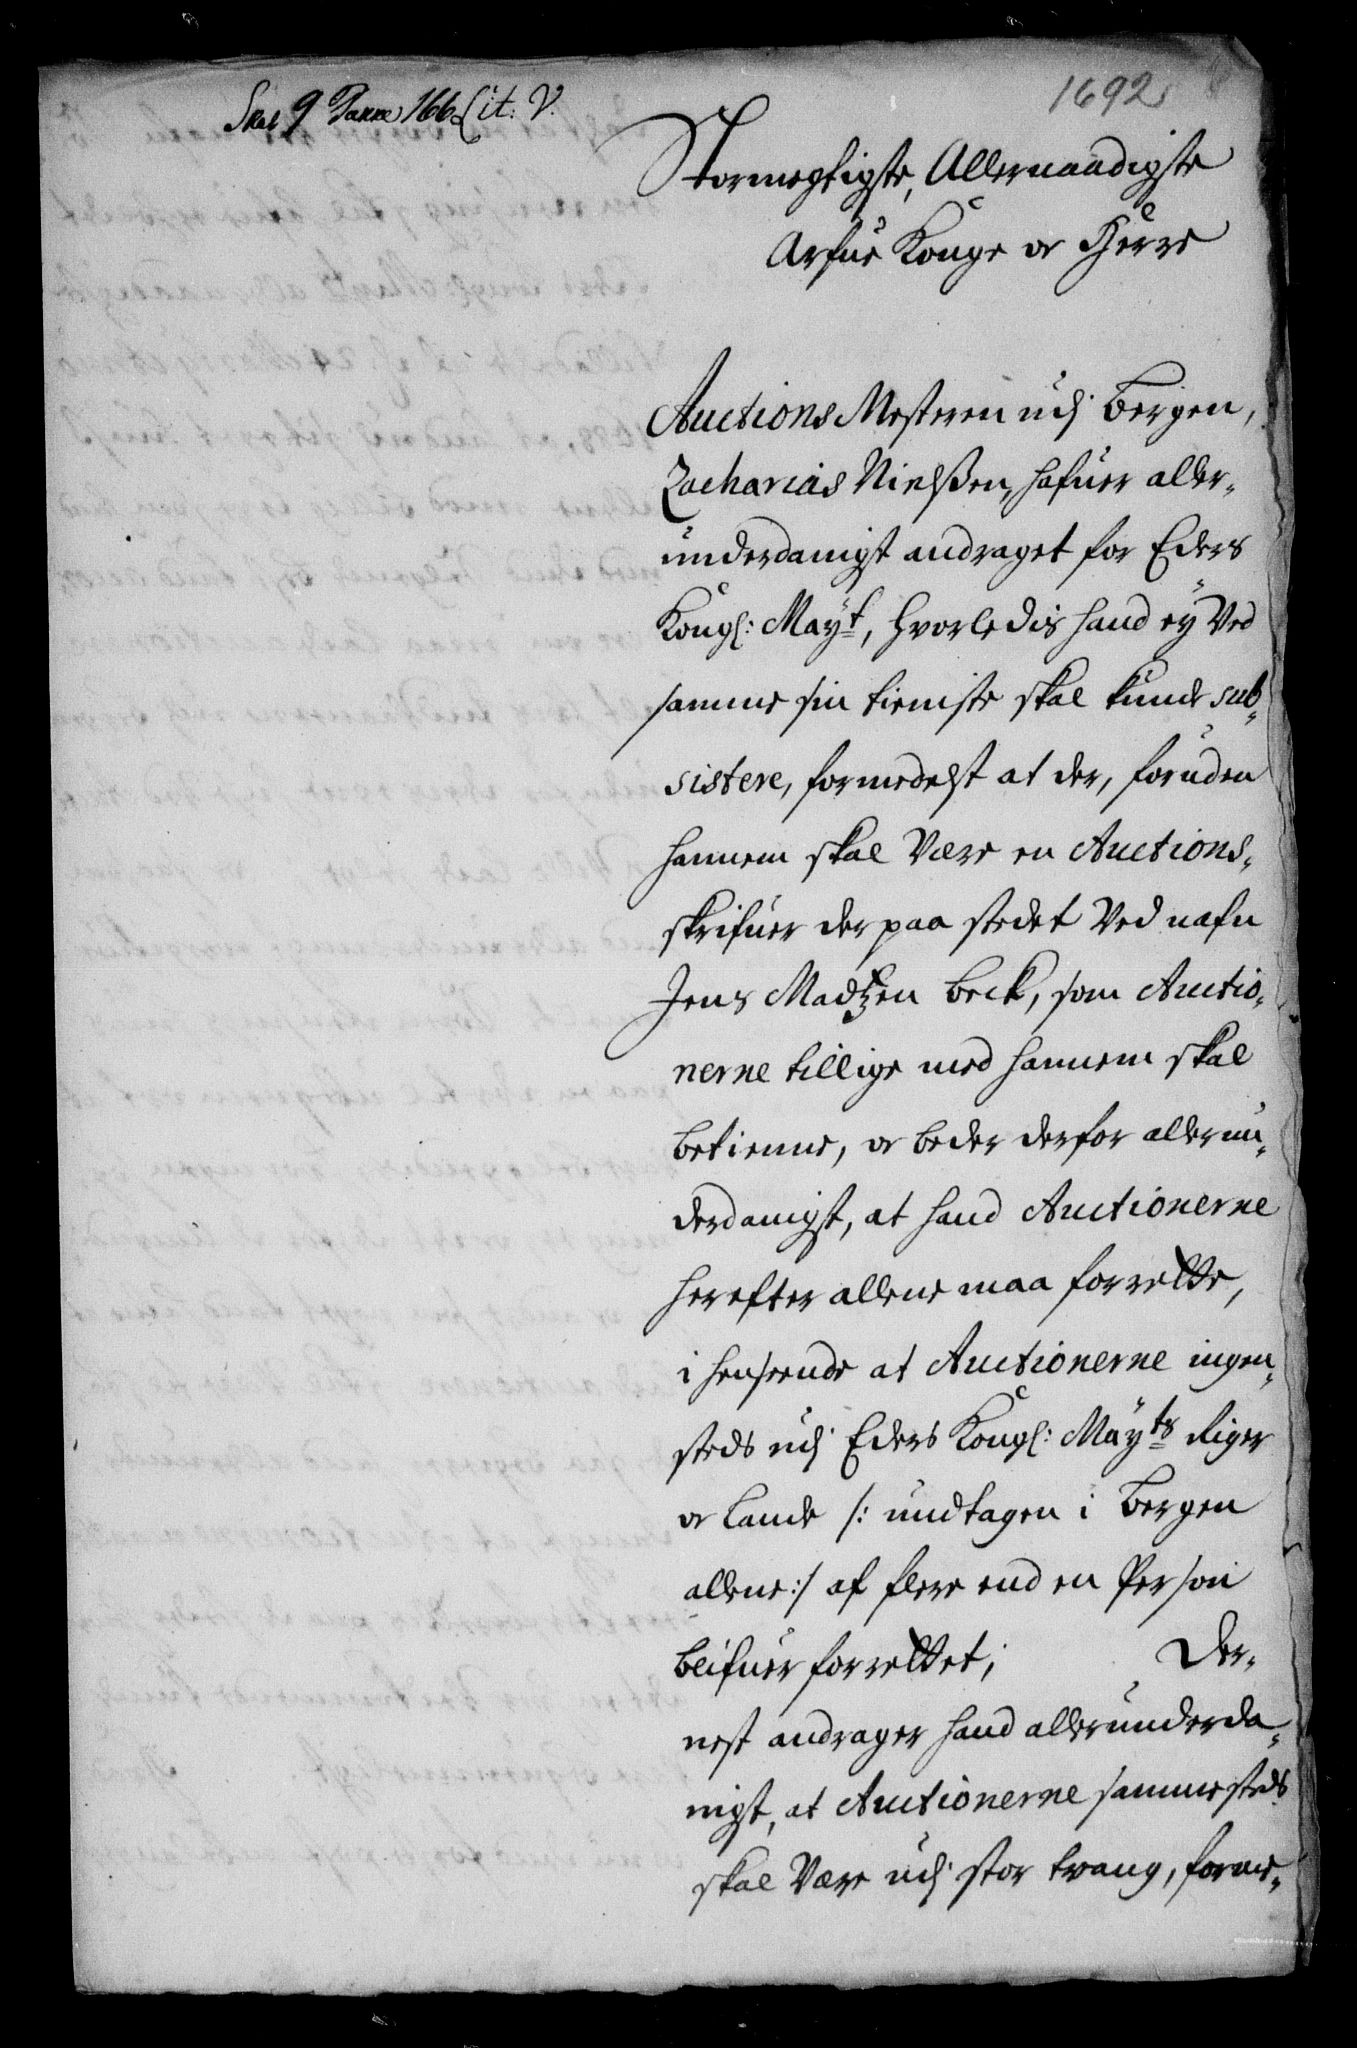 1692
Skab 9 Pakke 166 Lit: V.
Stormegtigste, Allernaadigste
Arfue Konge oc Herre
Auctions Mesteren udj Bergen,
Zacharias Nielßen, hafuer aller-
underdanigst andraget for Eders
Kongl: Mayt, hvorledis hand ey Ved
samme sin tieniste skal kunde sub-
sistere, formedelst at der, foruden
hannem skal Være en Auctions-
skrifuer der paa stedet Ved nafn
Jens Madtzen Beck, som Auctio-
nerne tillige med hannem skal
betienne, oc beder derfor allerun-
derdanigst, at hand Auctionerne
herefter allene maa forrette,
i henseende at Auctionerne ingen-
steds udj Eders Kongl: Mayts Riger
oc Lande /: undtagen i Bergen
allene :/ af flere end en Person
blifuer forrettet; Der-
nest andrager hand allerunderda-
nigst, at Auctionerne sammesteds
skal Være udj stor trang, forme-